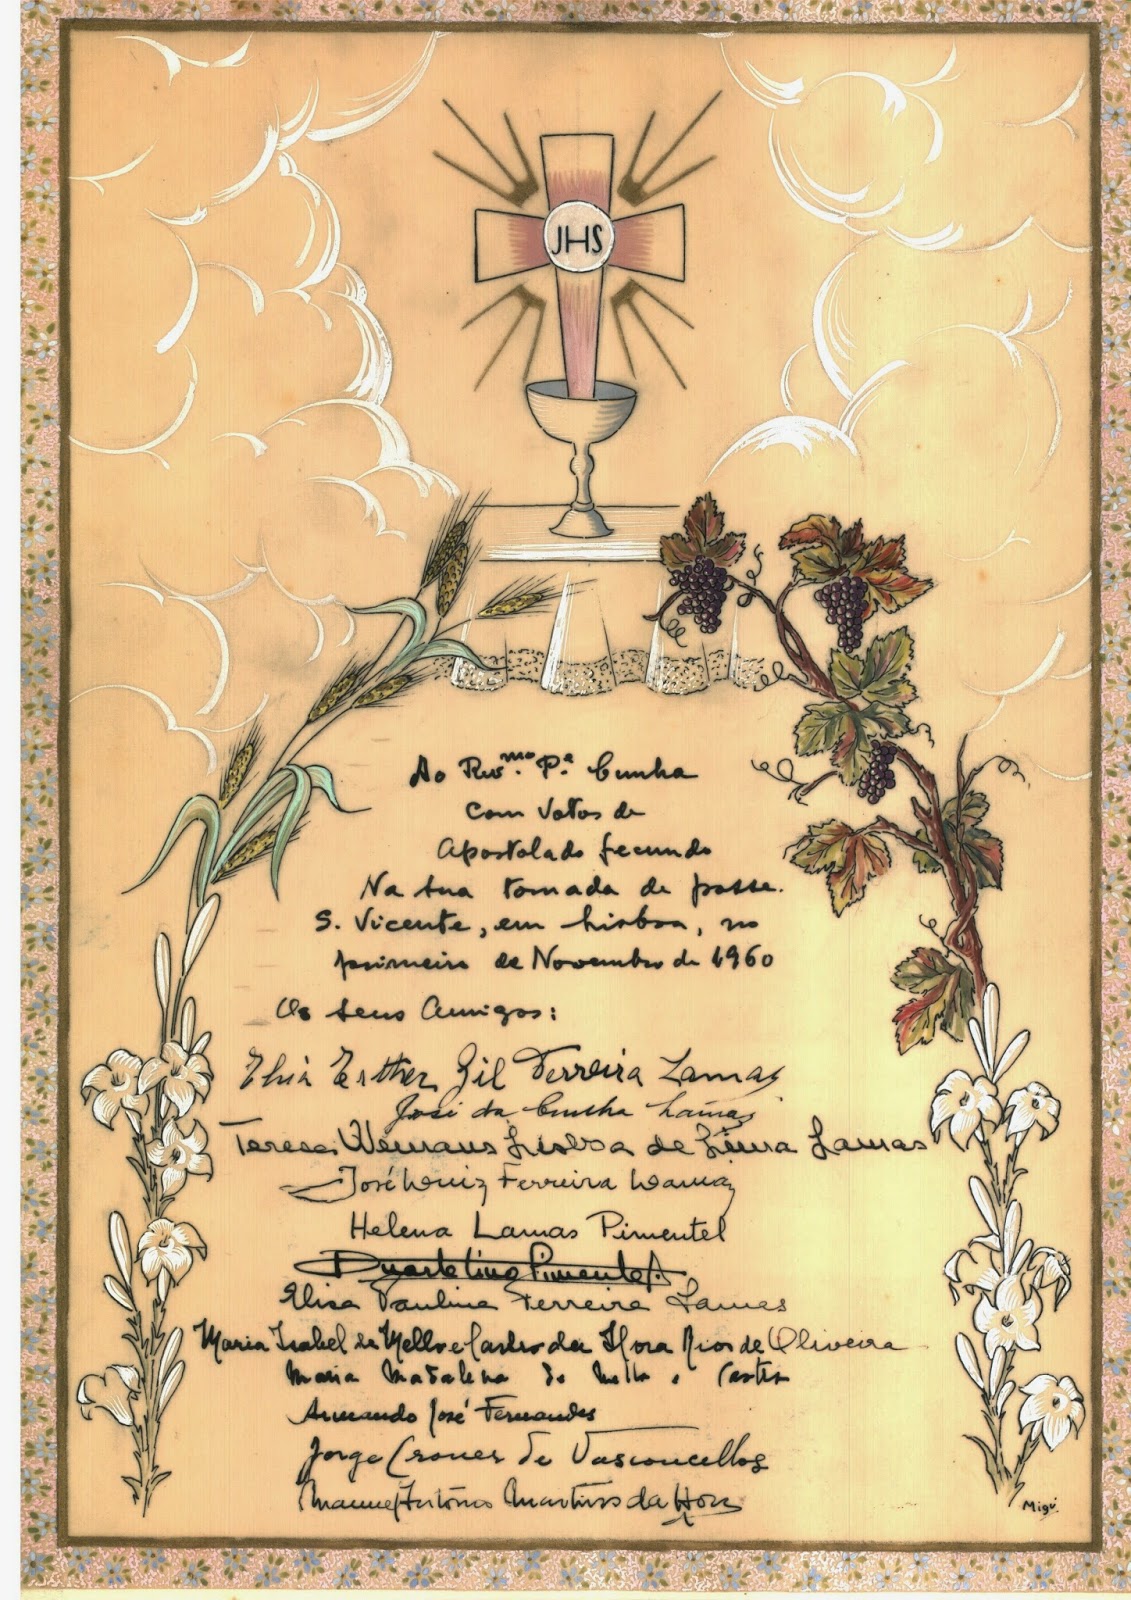 JHS
Ao Rev.mo P.e Cunha
com votos de
Apostolado fecundo
Na sua tomada de posse.
S. Vicente, em Lisboa, no
primeiro de Novembro de 1960
Os seus Amigos:
Esther Gil Ferreira Lamas
José da Cunha Lamas
Teresa Wemans Lisboa de Lima Lamas
José Luiz Ferreira Lamas
Helena Lamas Pimentel
Duarte Lino Pimentel
Elisa Paulina Ferreira Lamas
Maria Isabel de Mello e Castro da Hora Rios de Oliveira
Maria Madalena de Mello e Castro
Armando José Fernandes
Jorge Croner de Vasconcellos
Manuel António Martins da Hora
Migú.